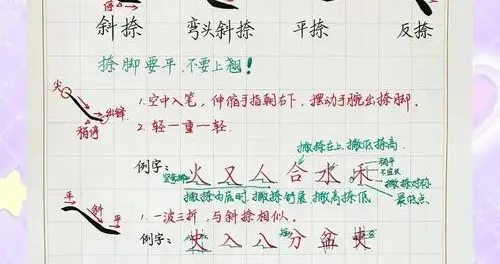 停
斜捺 弯头斜捺 平捺 反捺
捺脚要平,不要上翘!
尖
出锋
稍停
1.空中入笔,伸指手指朝右下,摆动手腕出捺脚.
2.轻一重一轻.
撇捺在上,撇低捺高
例字: 火 又 人 合 水 禾
撇捺内底时,撇捺舒展 撇高捺低
撇捺对称
最低点.
平 斜 平
1.一波三折,与斜捺相似.
例字: 史 入 八 分 盆 爽